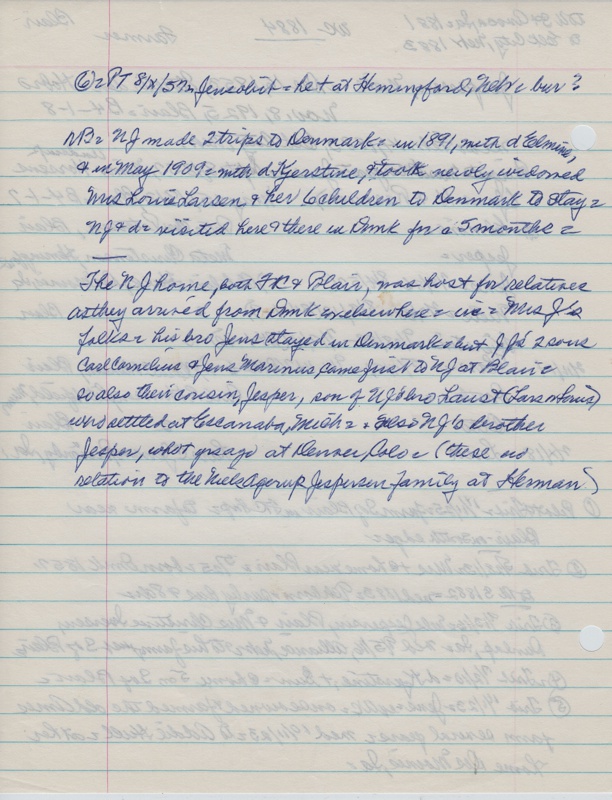 6) = PT 8/X/57 = Jens obit = h e t at Hemingford, Nebr = bur?
NB = NJ made 2 trips to Denmark = in 1891, with d Edmine,
& in May 1909 = with d Kjerstine, & took newly widowed
Mrs Louie Larsen & her 6 children to Denmark to stay =
NJ & d = visited here & there in Dmk for a 5 months =
The NJ home, both & Blair, was host for relatives
as they arrived from Dmk & elsewhere = = Mrs J's
folks = his bro Jens stayed in Denmark = but J J's 2 sons
Carl Cornelius & Jens Marinus, came just to NJ at Blair =
so also their cousin, Jesper, son of NJ's bro Laust (Lars = Louis)
who settled at Escanaba, Mich = = also NJ's brother
Jesper, who yrs ago at Denver, Colo = (these no
relation to the Niels Agerup Jespersen family at Herman)